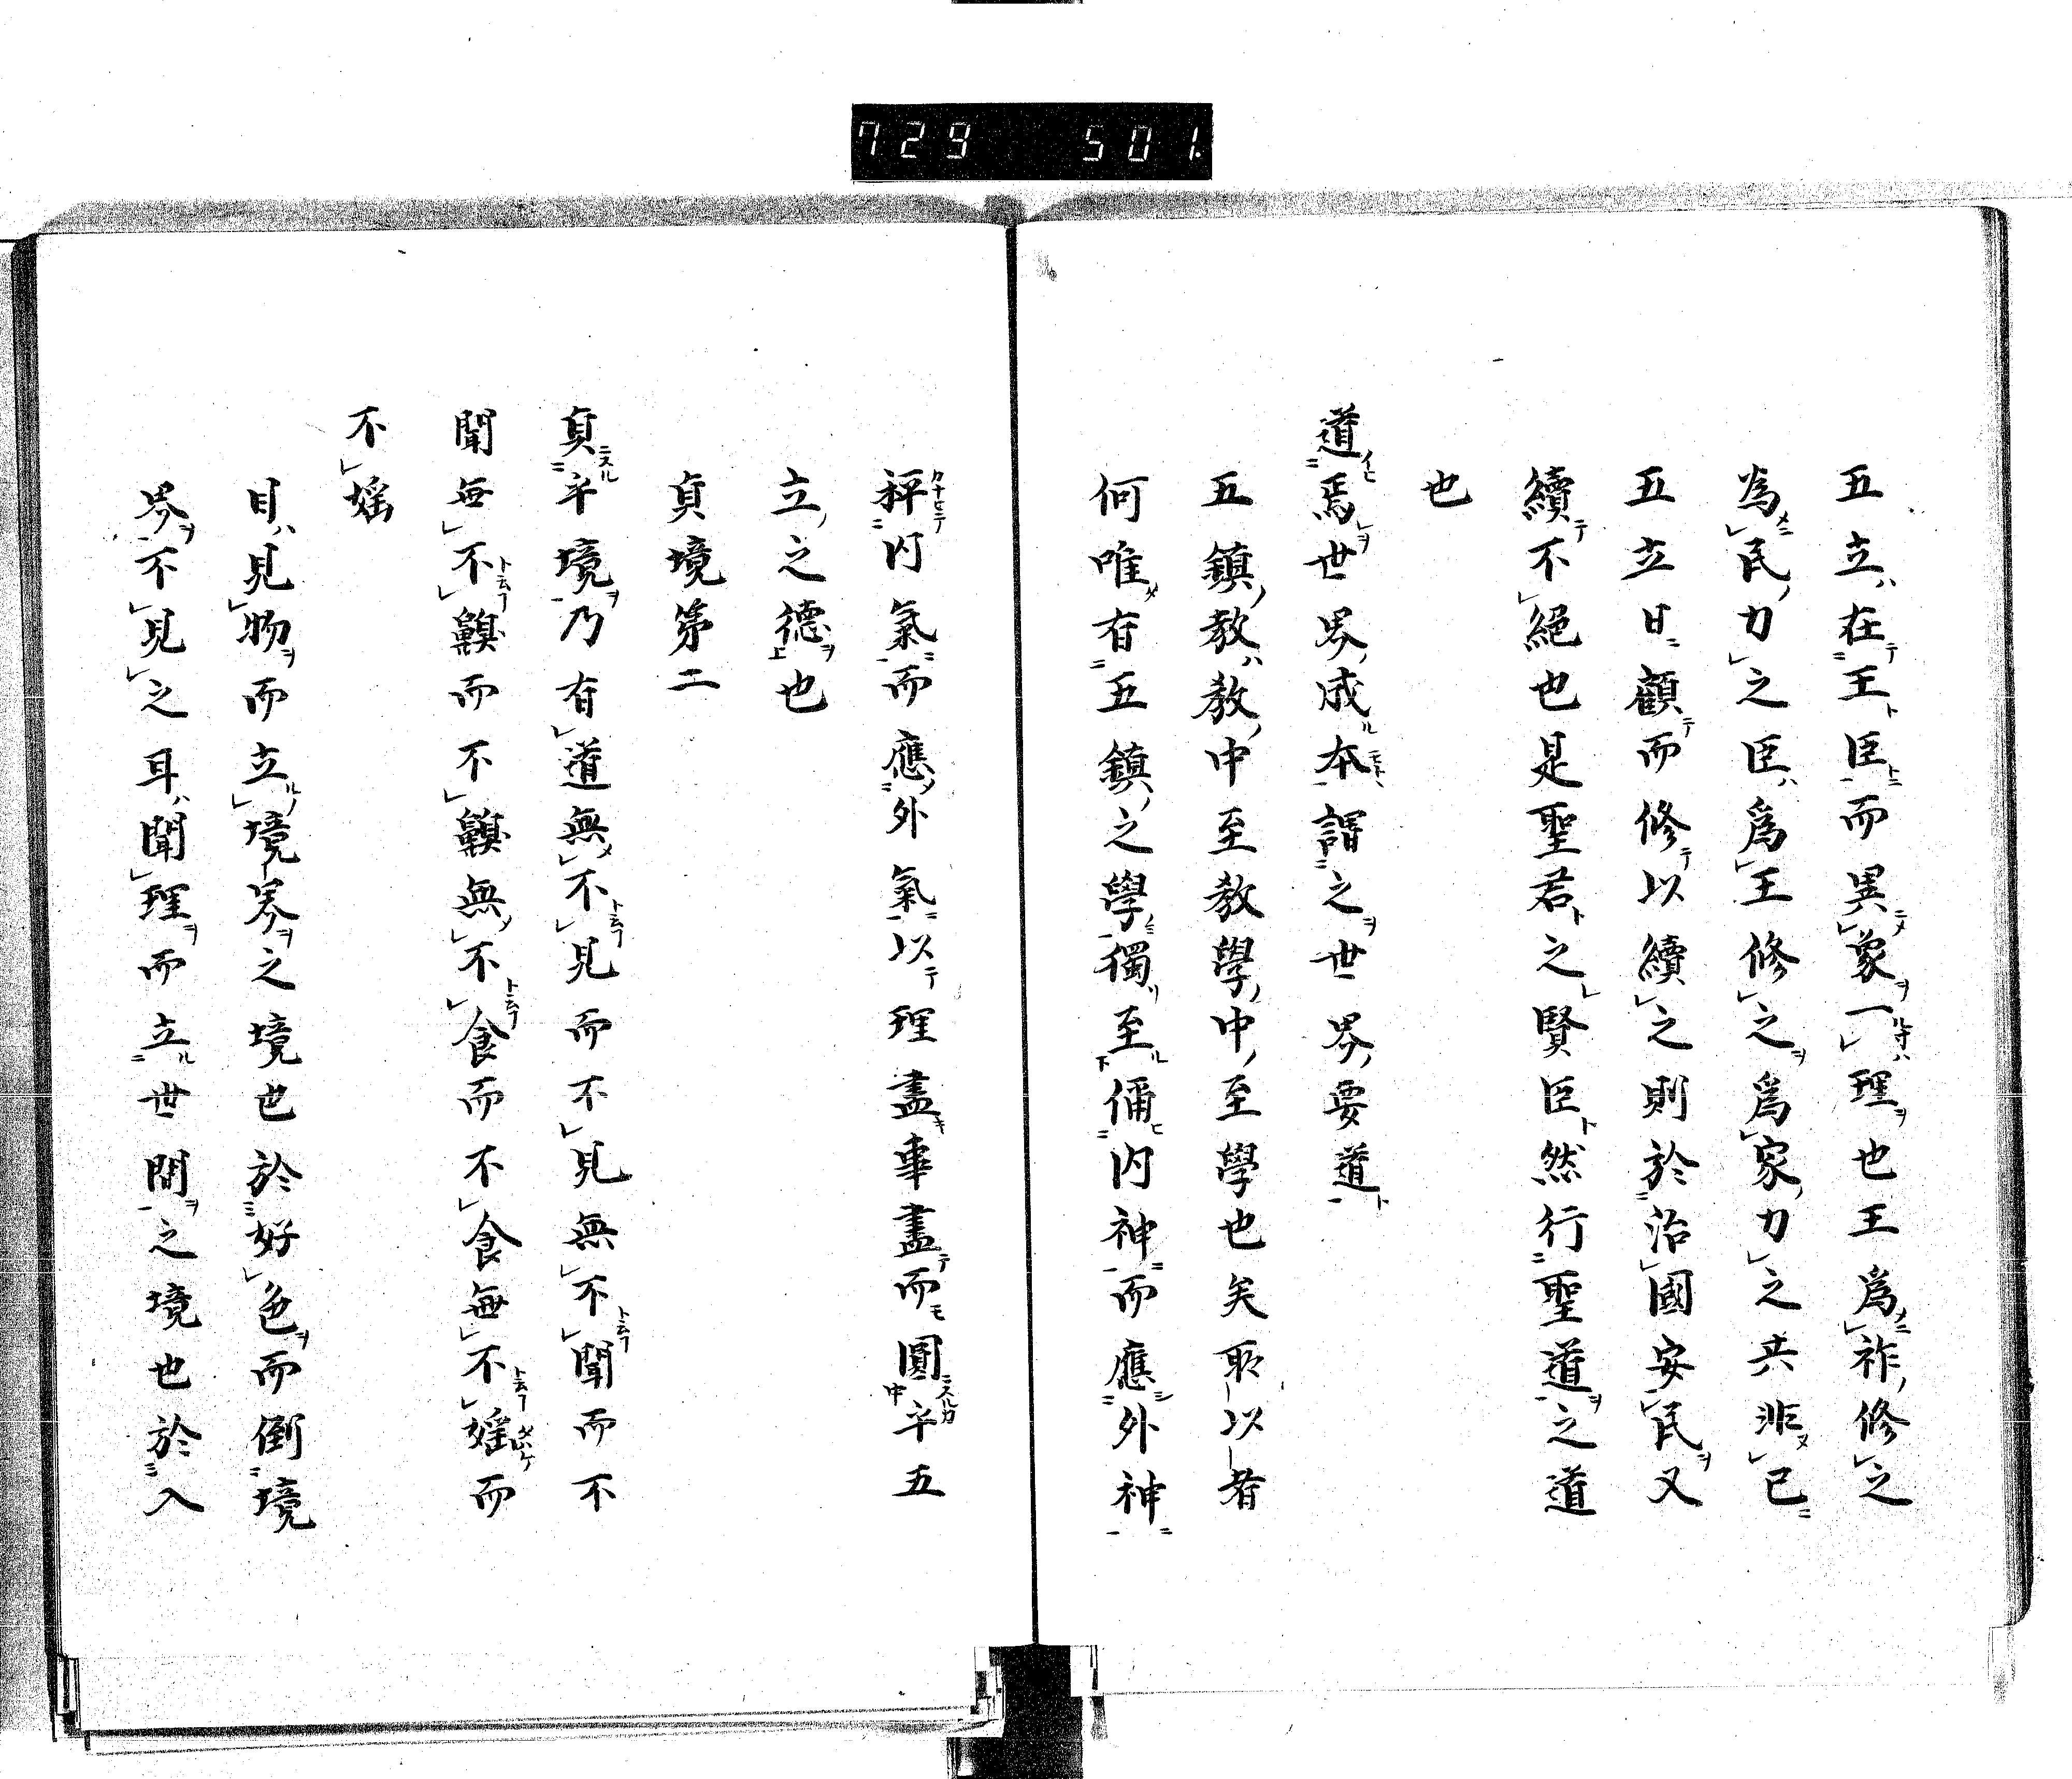 729 501
五立在王臣而異象一理也王爲祚修之
為民力之臣爲王修之爲家力之共非已
五立日顧而修以續之則於治國安民又
續不絕也是聖君之賢臣然行聖道之道
也
道焉世界成本謂之世界要道
五鎮教教中至教學中至學也矣耶以者
何唯有五鎮之學獨至備内神而應外神
秤内氣而應外氣以理盡事盡而圓五
立之德也
貞境第二
貞境乃有道無不見而不見無不聞而不
聞無不齅而不齅無不食而不食無不婬而
不婬
目見物而立境界之境也於好色而倒境
界不見之耳聞理而立世間之境也於入